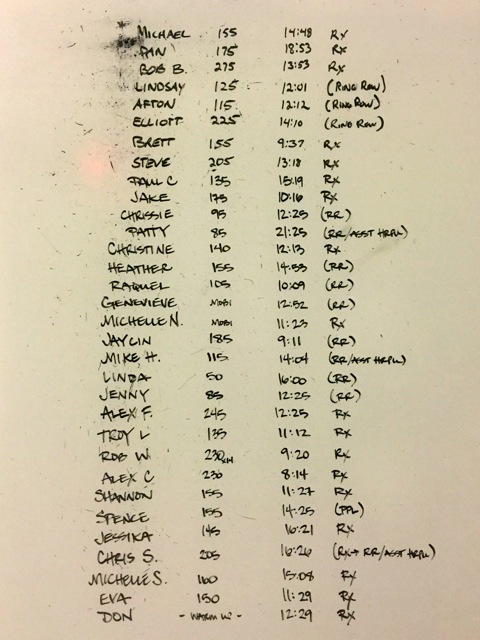 MICHAEL 155 14:48 Rx
DAN 175 18:53 Rx
BOB B. 275 13:53 Rx
LINDSAY 125 12:01 (RING ROW)
AFTON 115 12:12 (RING ROW)
ELLIOTT 225 14:10 (RING ROW)
BRETT 155 9:37 Rx
STEVE 205 13:18 Rx
PAUL C 135 15:19 Rx
JAKE 175 10:16 Rx
CHRISSIE 95 12:25 (RR)
PATTY 85 21:25 (RR/ASST HRPU)
CHRISTINE 140 12:13 Rx
HEATHER 155 14:53 (RR)
RAQUEL 105 10:09 (RR)
GENEVIEVE MOBI 12:52 (RR)
MICHELLE N. MOBI 11:23 Rx
JAYLIN 185 9:11 (RR)
MIKE H. 115 14:04 (RR/ASST HRPU)
LINDA 50 16:00 (RR)
JENNY 85 12:25 (RR)
ALEX F. 245 12:25 Rx
TROY L 135 11:12 Rx
ROB W. 230 9:20 Rx
ALEX C 230 8:14 Rx
SHANNON 155 11:27 Rx
SPENCE 155 14:25 (PPL)
JESSIKA 145 16:21 Rx
CHRIS S. 205 16:26 (Rx→ RR/ASST HRPU)
MICHELLE S. 160 15:08 Rx
EVA 150 11:29 Rx
DON 12:29 Rx